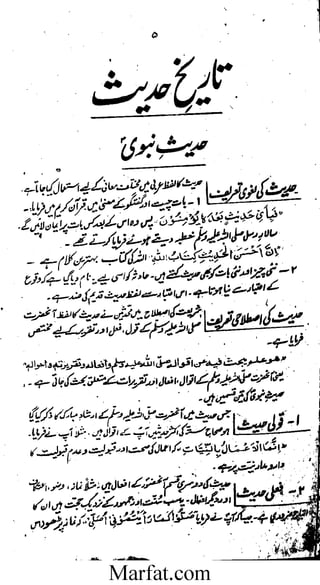 ۵
تاریخ حدیث
حدیث نبوی
حدیث کی لغوی تعریف حدیث کا لفظ عربی میں مختلف معانی کے لیے استعمال کیا جاتا ہے۔
۱- بات چیت اور گفتگو کے معنی میں قرآن کریم میں فرمایا۔
فَبِاَیِّ حَدِیْثٍ بَعْدَہٗ یُؤْمِنُوْنَ۔ پس وہ اس کے بعد کس بات پر ایمان لائیں گے۔
صلی اللہ علیہ وسلم خطبہ دیتے ہوئے فرمایا کرتے تھے۔
اِنَّ اَحْسَنَ الْحَدِیْثِ کِتَابُ اللہِ۔ اللہ کی کتاب بہترین کلام ہے۔
۲- نئی چیز اور نئی بات کو بھی حدیث کہتے ہیں۔ حادثہ کو اسی لیے یہ نام دیا گیا ہے کہ وقوع
کے اعتبار سے نیا ہوتا ہے۔ اس اعتبار سے لفظ حدیث قدیم کی ضد ہے۔
حدیث کی اصطلاحی تعریف شریعت کی اصطلاح میں محدثین نے حدیث کا لفظ آنحضرت
صلی اللہ علیہ وسلم کے قول، فعل اور تقریر کے لیے مختص
فرمایا ہے۔
ھو علم یبحث فیہ من اقوالہ صلی اللہ علیہ وسلم وافعالہ وتقریرتہ واحوالہ
یعنی آنحضرت صلی اللہ علیہ وسلم کے اقوال، افعال اور تقریرات کے متعلق بحث کی جاتی ہے۔
حدیث نبوی کی تین قسمیں ہیں۔
۱- قولی حدیث جس حدیث میں آنحضرت صلی اللہ علیہ وسلم کے ارشاد مبارک کا ذکر کیا گیا
ہو کی اکثر حدیثیں آپ کے اقوال ہیں۔ مثلاً آپ نے فرمایا۔
اِنَّمَا الْاَعْمَالُ بِالنِّیَّاتِ کہ اعمال کی صحت اور قبولیت و عدم قبولیت کا
دارومدار نیت پر ہے۔
۲- فعلی حدیث حدیث کی دوسری قسم آنحضور کے افعال ہیں۔ مثلاً نماز، وضو،
اور دیگر افعال۔ یہ سب سنت اور جمہور کے نزدیک حجت ہیں ان کا
ضروری ہے۔ جیسا کہ آپ نے فرمایا صَلُّوْا کَمَا رَاَیْتُمُوْنِیْ اُصَلِّیْ۔ کہ نماز پڑھو جس
Marfat.com